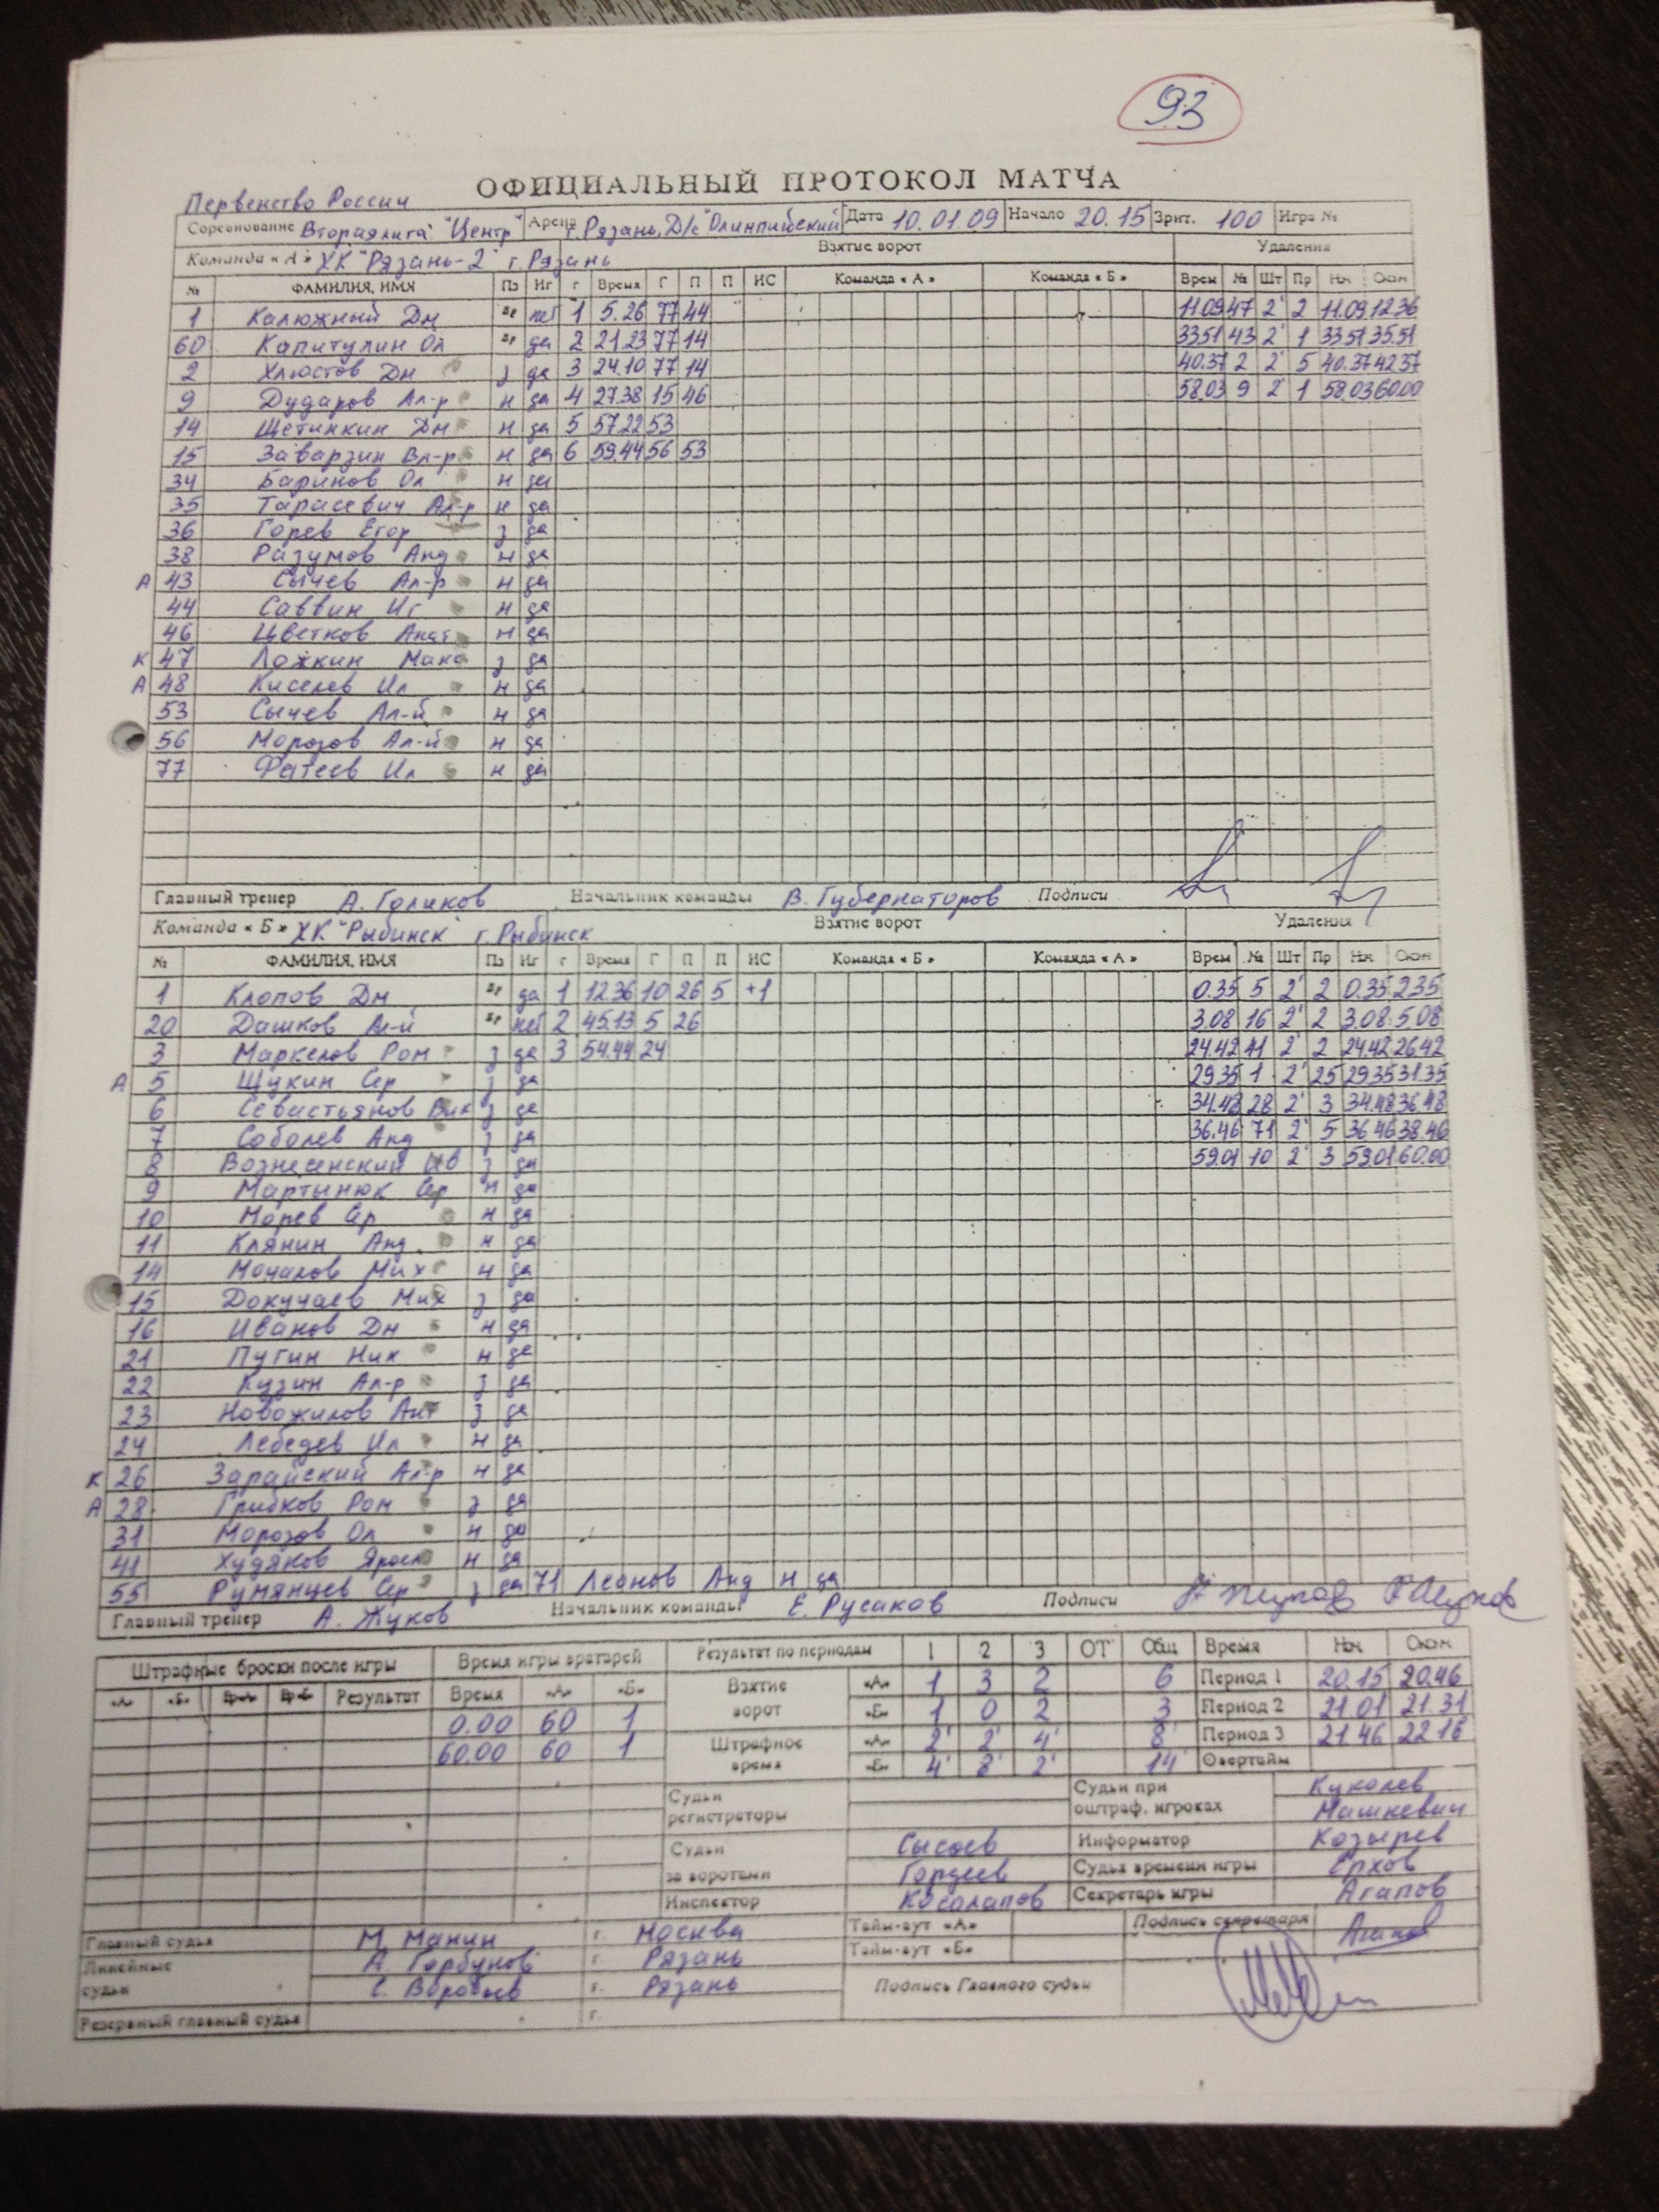 93
ОФИЦИАЛЬНЫЙ ПРОТОКОЛ МАТЧА
Первенство России
Соревнование Вторая лига "Центр" Арена г. Рязань, Д/с "Олимпийский" Дата 10.01.09 Начало 20.15 Зрит. 100 Игра №
Команда «А» ХК "Рязань-2" г. Рязань Взятие ворот Удаления
№ ФАМИЛИЯ, ИМЯ Пз Иг г Время Г П П ИС Команда «А» Команда «Б» Врем № Шт Пр Нач Окон
1 Калюжный Дм вр нет 1 5.26 77 44 11.09 47 2' 2 11.09 12.36
60 Капитулин Ол вр да 2 21.23 77 14 33.51 43 2' 1 33.51 35.51
2 Хлюстов Дм з да 3 24.10 77 14 40.37 2 2' 5 40.37 42.37
9 Дударов Ал-р н да 4 27.38 15 46 58.03 9 2' 1 58.03 60.00
14 Щетинкин Дм н да 5 57.22 53
15 Заварзин Вл-р н да 6 59.44 56 53
34 Баринов Ол н да
35 Тарасевич Ал-р н да
36 Горев Егор з да
38 Разумов Анд н да
А 43 Сычев Ал-р н да
44 Саввин Иг н да
46 Цветков Анат н да
К 47 Ложкин Макс з да
А 48 Киселев Ил н да
53 Сычев Ал-й н да
56 Морозов Ал-й н да
77 Фатеев Ил н да
Главный тренер А. Голиков Начальник команды В. Губернаторов Подписи
Команда «Б» ХК "Рыбинск" г. Рыбинск Взятие ворот Удаления
№ ФАМИЛИЯ, ИМЯ Пз Иг г Время Г П П ИС Команда «Б» Команда «А» Врем № Шт Пр Нач Окон
1 Клопов Дм вр да 1 12.36 10 26 5 +1 0.35 5 2' 2 0.35 2.35
20 Дашков Ал-й вр нет 2 45.13 5 26 3.08 16 2' 2 3.08 5.08
3 Маркелов Ром з да 3 54.44 24 24.42 41 2' 2 24.42 26.42
А 5 Щукин Сер з да 29.35 1 2' 25 29.35 31.35
6 Севастьянов Вик з да 34.48 28 2' 3 34.48 36.48
7 Соболев Анд з да 36.46 71 2' 5 36.46 38.46
8 Вознесенский Ив з да 59.01 10 2' 3 59.01 60.00
9 Мартынюк Сер н да
10 Морев Сер н да
11 Клянин Анд н да
14 Мочалов Мих н да
15 Докучаев Мих з да
16 Иванов Дм н да
21 Пугин Ник н да
22 Кузин Ал-р з да
23 Новожилов Ант з да
24 Лебедев Ил н да
К 26 Зарайский Ал-р н да
А 28 Грибков Ром з да
31 Морозов Ол н да
41 Худяков Яросл н да
55 Румянцев Сер з да 71 Леонов Анд н да
Главный тренер А. Жуков Начальник команды Е. Русаков Подписи
Штрафные броски после игры Время игры вратарей Результат по периодам 1 2 3 ОТ Общ Время Нач Окон
«А» «Б» Вр«А» Вр«Б» Результат Время «А» «Б» Взятие ворот «А» 1 3 2 6 Период 1 20.15 20.46
0.00 60 1 «Б» 1 0 2 3 Период 2 21.01 21.31
60.00 60 1 Штрафное время «А» 2' 2' 4' 8' Период 3 21.46 22.16
«Б» 4' 8' 2' 14' Овертайм
Судьи регистраторы Судьи при оштраф. игроках Куколев
Машкевич
Судьи за воротами Сысоев Информатор Козырев
Гордеев Судья времени игры Ерхов
Инспектор Косолапов Секретарь игры Агапов
Главный судья М. Манин г. Москва Тайм-аут «А» Подпись секретаря
Линейные судьи А. Горбунов г. Рязань Тайм-аут «Б»
С. Воробьев г. Рязань Подпись Главного судьи
Резервный главный судья г.